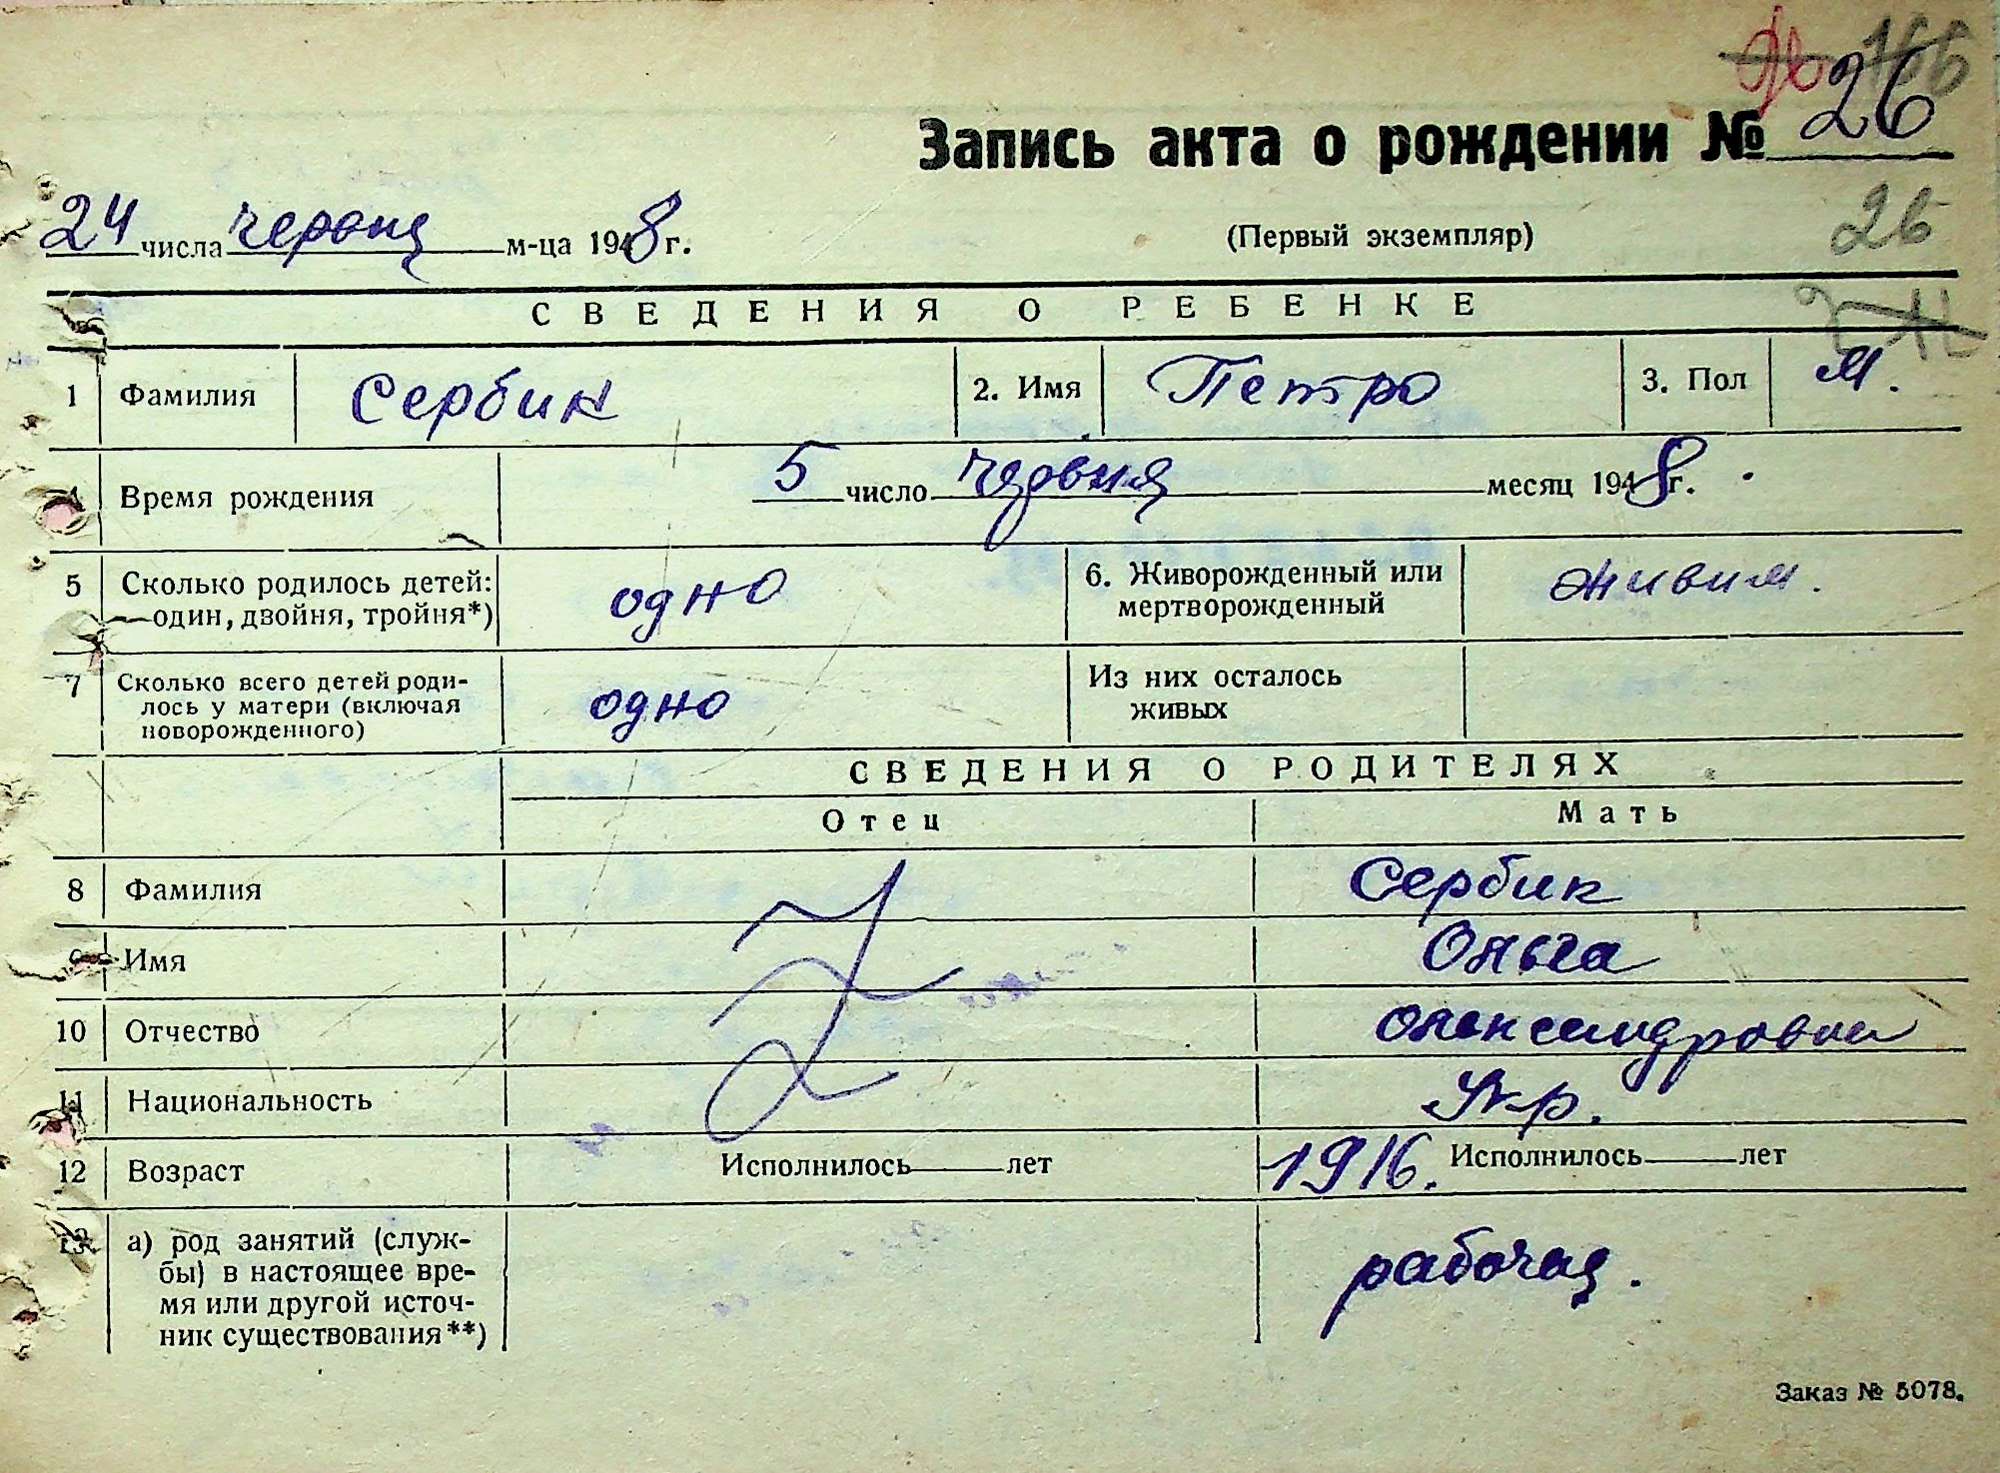 166
26
Запись акта о рождении № 26
24 числа червня м-ца 1948 г.
(Первый экземпляр)
26
СВЕДЕНИЯ О РЕБЕНКЕ
1 Фамилия Сербин 2. Имя Петро 3. Пол м.
4 Время рождения 5 число червня месяц 1948 г.
5 Сколько родилось детей: одно 6. Живорожденный или живим.
—один, двойня, тройня*) мертворожденный
7 Сколько всего детей роди- одно Из них осталось
лось у матери (включая живых
новорожденного)
СВЕДЕНИЯ О РОДИТЕЛЯХ
Отец Мать
8 Фамилия Сербин
9 Имя Ольга
10 Отчество Олександровна
11 Национальность Укр.
12 Возраст Исполнилось лет 1916. Исполнилось лет
13 а) род занятий (служ- рабочая.
бы) в настоящее вре-
мя или другой источ-
ник существования**)
Заказ № 5078.